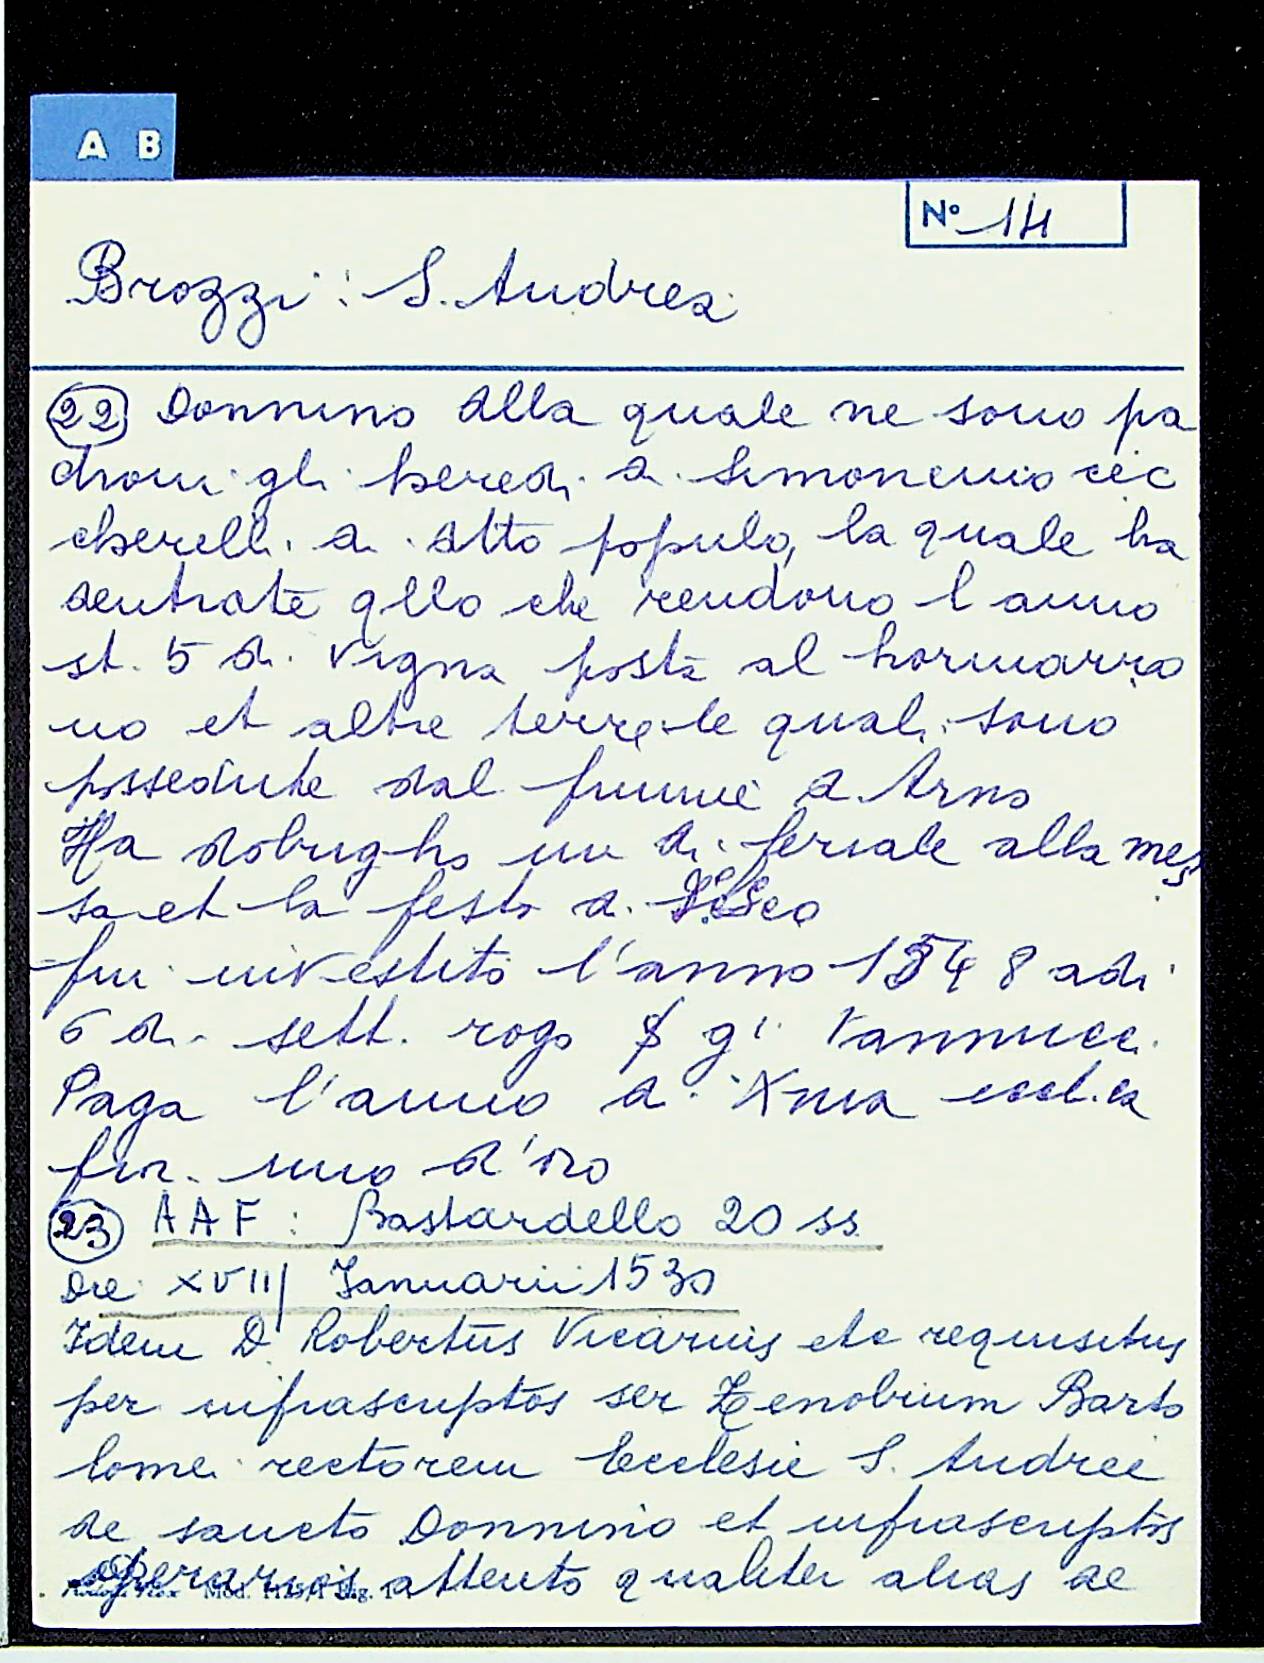 A B
N° 14
Brozzi: S. Andrea
22 Donnino alla quale ne sono pa
droni gli heredi di Simoncino cec
cherelli di dtto populo, la quale ha
dentrate qllo che rendono l anno
st. 5 di vigna posta al
no et altre terre le quali sono
possedute dal fiume d Arno
Ha dobrigho un di feriale alla mes
sa et la festa di
fu investito l'anno 1548 adi
6 di sett. rogo g' Vannucci
Paga l'anno di Xma
fior. uno d'oro
23 AAF: Bastardello 20 ss.
Die XVIII Januarii 1530
Idem D Robertus Vicarius etc requisitus
per infrascriptos ser Zenobium Barto
lomei rectorem Ecclesie S. Andree
de sancto Donnino et infrascriptos
operarios attento qualiter alias de